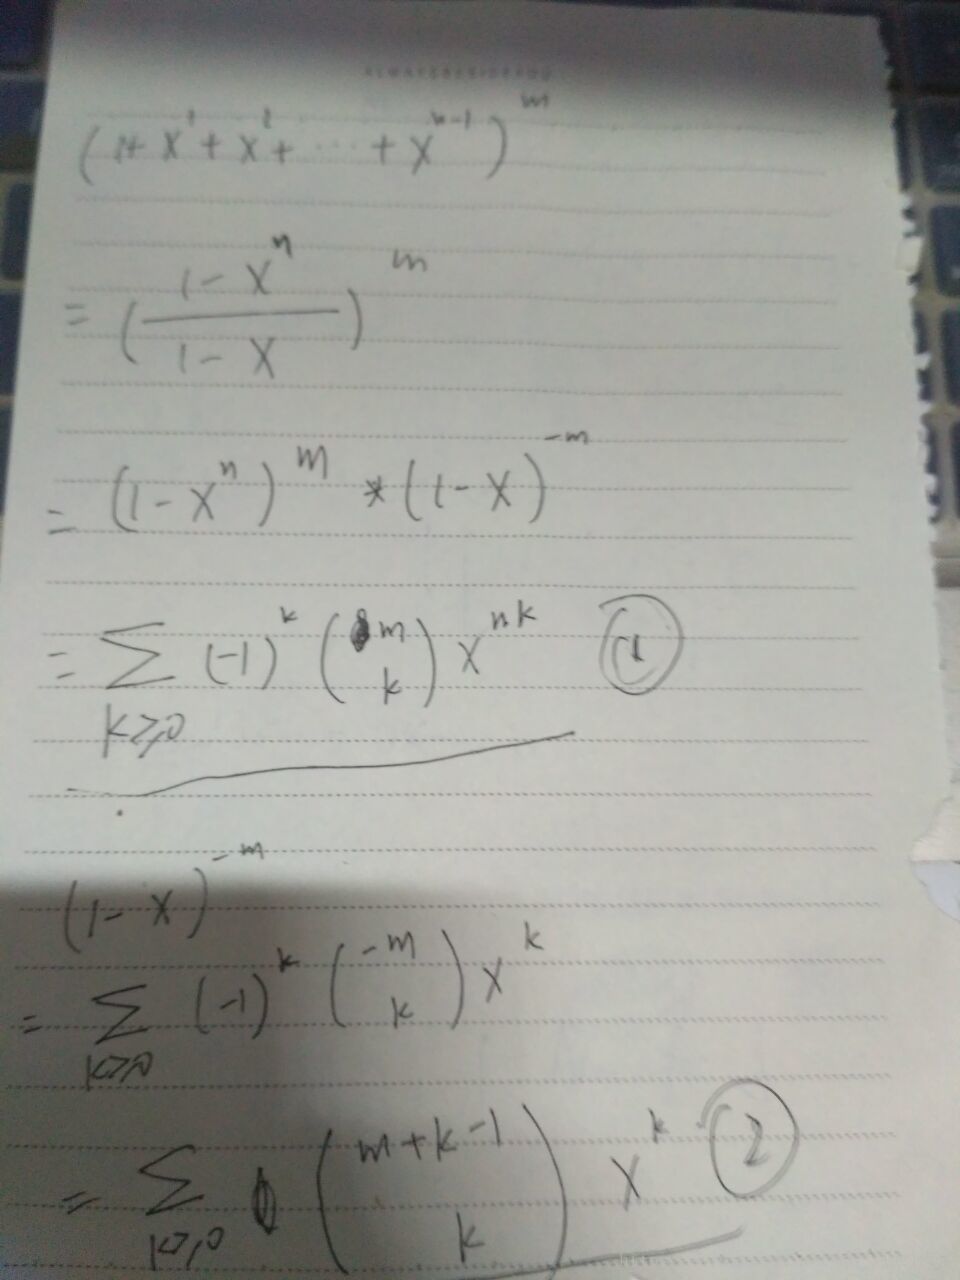 (1+x¹+x²+⋯+x^{n-1})^m
=(\frac{1-x^n}{1-x})^m
=(1-x^n)^m*(1-x)^{-m}
=\sum_{k≥0}(-1)^k\binom{m}{k}x^{nk} ①
(1-x)^{-m}
=\sum_{k≥0}(-1)^k\binom{-m}{k}x^k
=\sum_{k≥0}\binom{m+k-1}{k}x^k ②